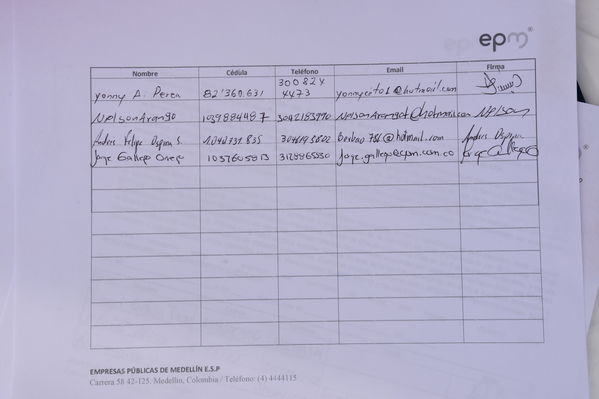 epm®
Nombre Cédula Teléfono Email Firma
Yonny A. Perea 82'360.631 300824 4473 yonnycito1@hotmail.com
Nelson Arango 1039884487 3042183970 NelsonArango1@hotmail.com Nelson
Anders Felipe Ospina S. 1.040.731.835 @hotmail.com Anders Ospina
Jorge Gallego 1037605813 3128865550 Jorge.gallego@epm.com.co Jorge Gallego
EMPRESAS PÚBLICAS DE MEDELLÍN E.S.P
Carrera 58 42-125. Medellín, Colombia / Teléfono: (4) 4444115